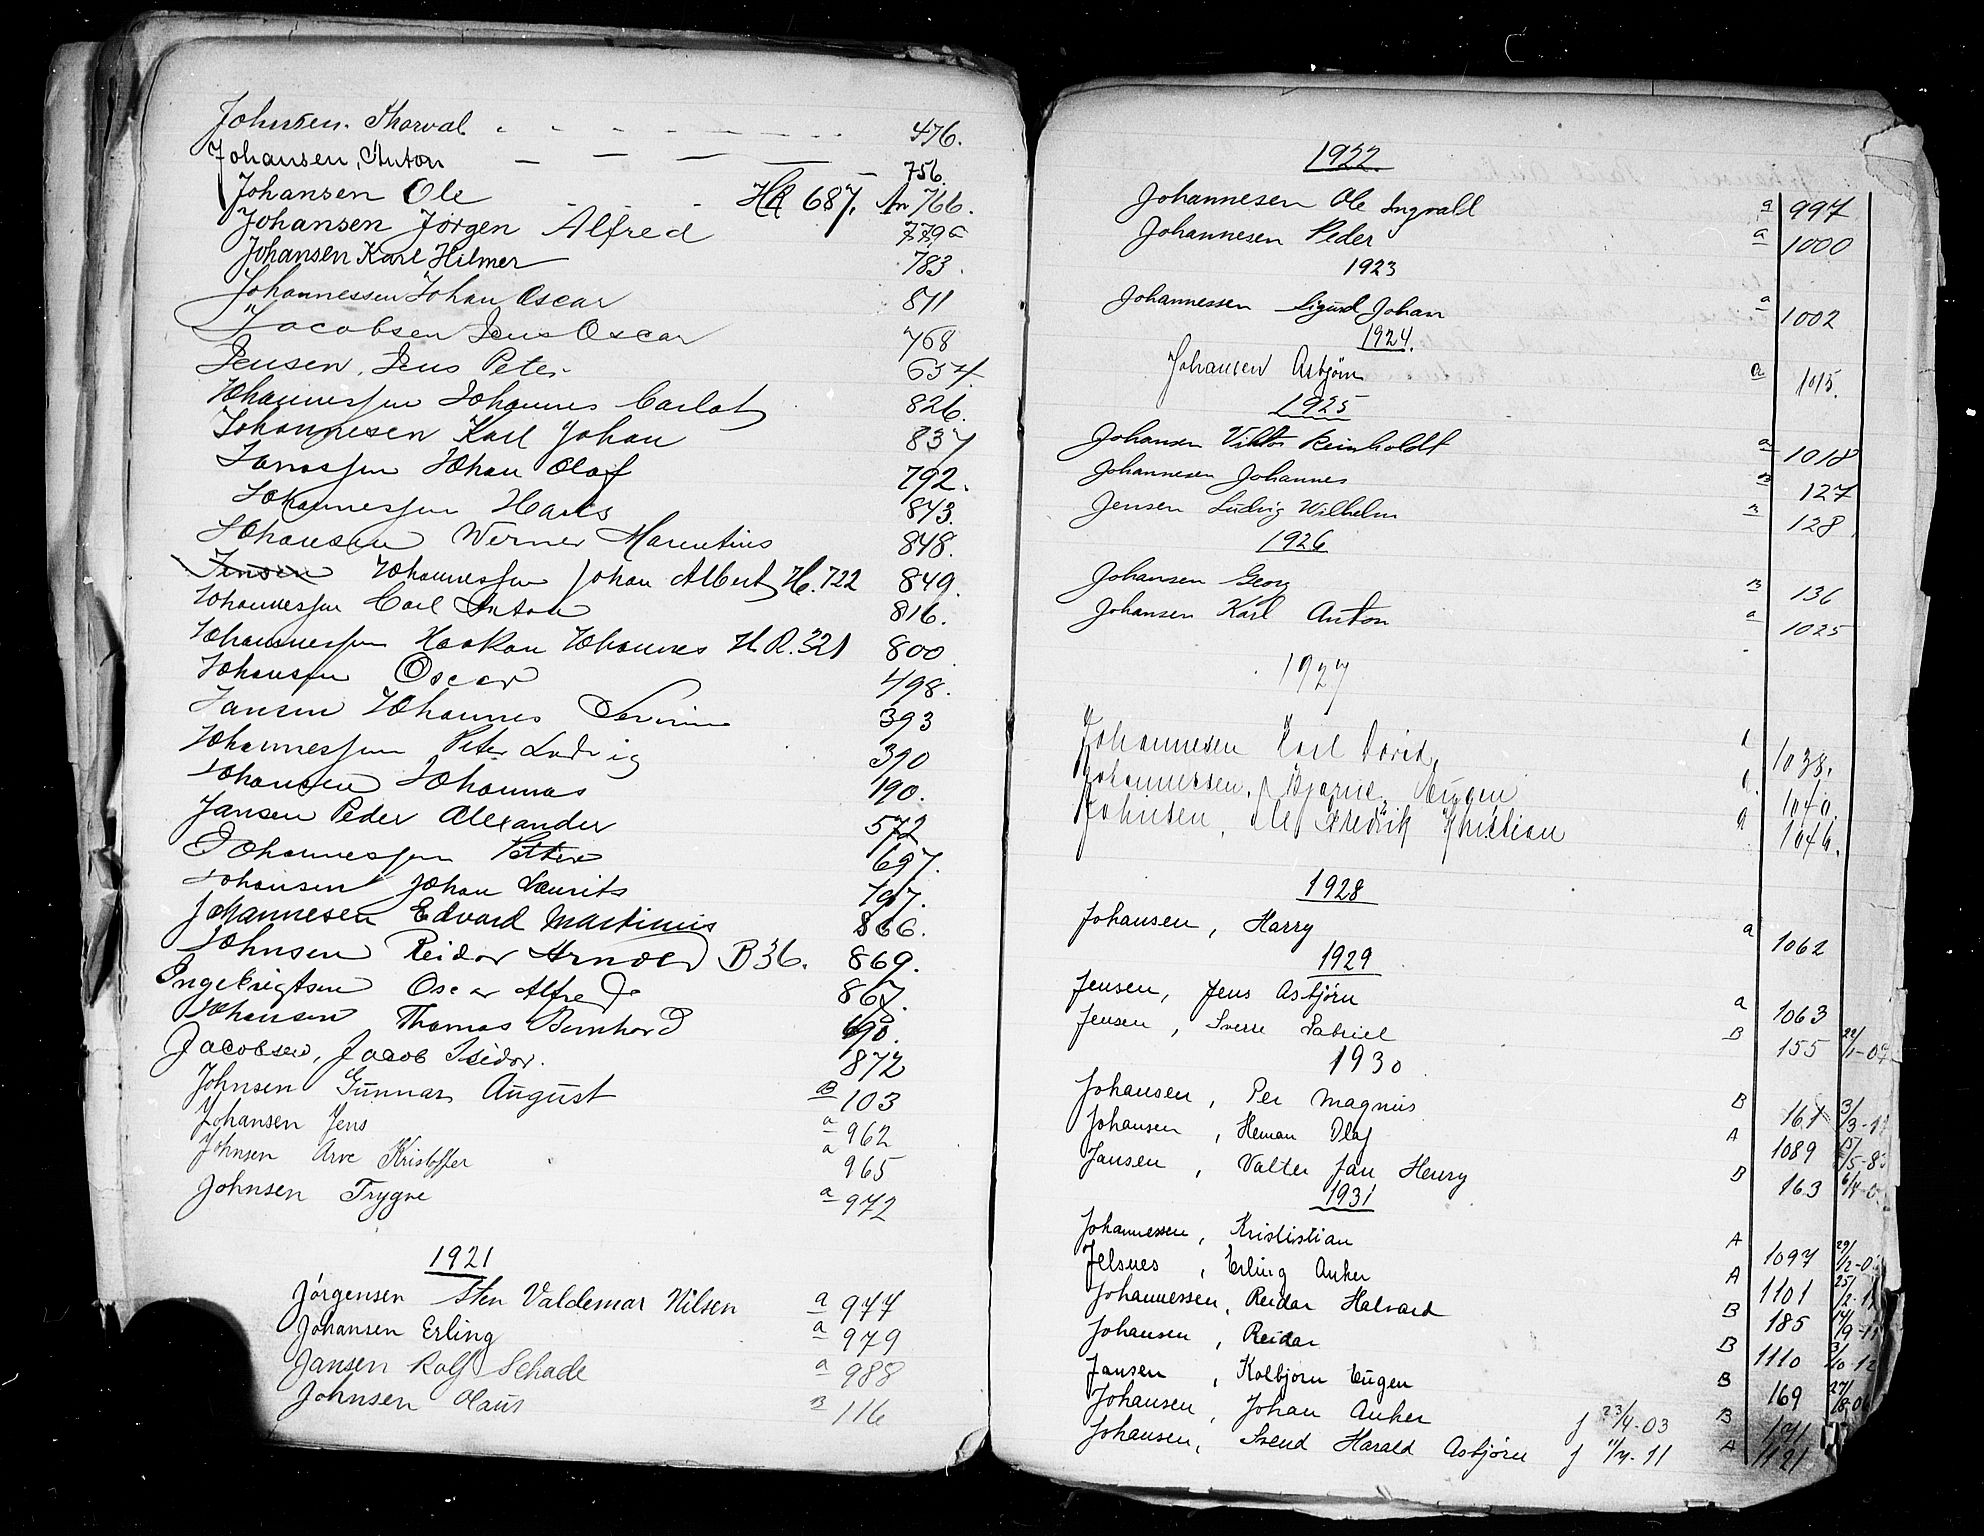 Johnsen. Thorval 476.
Johansen, Anton 756.
Johansen Ole HR 687. An 766.
Johansen Jørgen Alfred 779a
Johansen Karl Hilmer 783.
Johannessen Johan Oscar 811
Jacobsen Jens Oscar 768
Jensen, Jens Peter 634.
Johannessen Johannes Carlot 826.
Johannesen Karl Johan 837
Johan Olaf 792.
Johannessen Hans 843.
Johansen Werner Marentius 848.
Jensen Johannessen Johan Albert H. 722 849.
Johannessen Carl Anton 816.
Johannessen Haakon Johannes H.R. 321 800.
Johansen Oscar 498.
Jansen Johannes 393
Johannessen Peter Ludvig 390
Johansen Johannes 190.
Jansen Peder Alexander 572
Johannessen Petter 697.
Johansen Johan Laurits 797.
Johannesen Edvard Martinius 866.
Johnsen Reidar Arnold B 36. 869.
Ingebrigtsen Oscar Alfred 867.
Johansen Thomas Bernhard 690.
Jacobsen, Jacob Isidor. 872
Johnsen Gunnar August B 103
Johansen Jens a 962
Johnsen Arve Kristoffer a 965
Johnsen Trygve a 972
1921
Jørgensen Sten Valdemar Nilsen a 977
Johansen Erling a 979
Jansen Rolf Schade a 988
Johnsen Olaus B 116
1922.
Johannesen Ole Ingvald a 997
Johannesen Peder a 1000
1923
Johannessen Sigurd Johan a 1002
1924.
Johansen Asbjørn a 1015.
1925
Johansen Viktor Reinholdt a 1018
Johannesen Johannes B 127
Jensen Ludvig Wilhelm B 128
1926
Johansen Georg B 136
Johansen Karl Anton a 1025
1927
Johannesen Karl David. 1038.
Johannessen, Bjarne Eugen 1040.
Johnsen, Ole Fredrik Khristian a 1046.
1928
Johansen, Harry a 1062
1929
Jensen, Jens Asbjørn a 1063
Jensen, Sverre Gabriel B 155
1930
Johansen, Per Magnus B 161
Johansen, Heman Olaf A 1089
Jansen, Valter Jan Henry B 163
1931
Johannessen, Krististian A 1097
Jelsnes, Erling Anker A 1101
Johannessen, Reidar Halvard B 185
Johansen, Reidar B 1110
Jansen, Kolbjørn Eugen B 169
Johansen, Johan Anker f 23/4-03 B 171
Johansen, Svend Harald Asbjørn f 11/4-11 A 1121